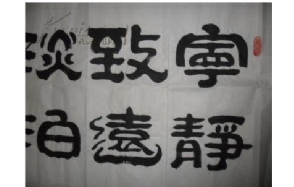 寧靜
致遠
淡泊